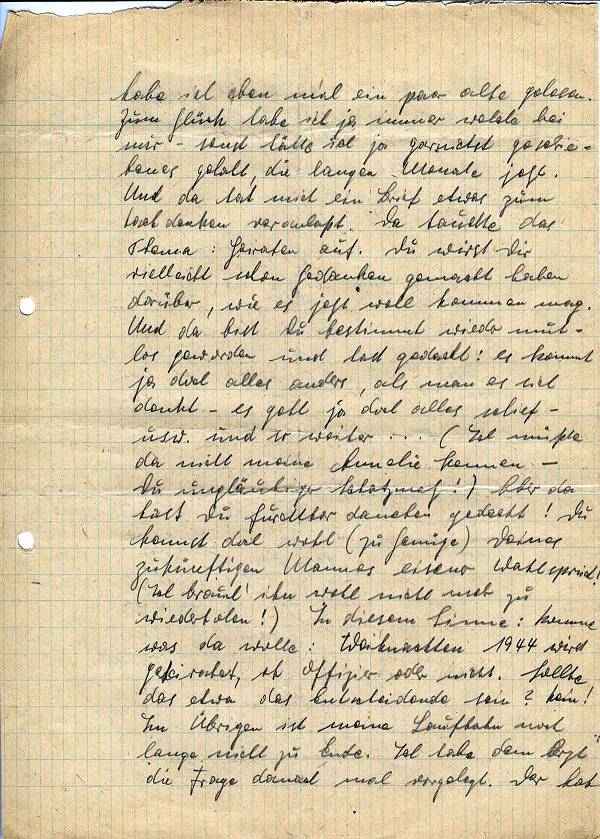 habe ich eben mal ein paar alte gelesen.
Zum Glück habe ich ja immer welche bei
mir - sonst hätte ich ja garnichts geschrie-
benes gehabt, die langen Monate jetzt.
Und da hat mich ein Brief etwas zum
Nachdenken veranlaßt. Da tauchte das
Thema: Heiraten auf. Du wirst Dir
vielleicht schon Gedanken gemacht haben
darüber, wie es jetzt wohl kommen mag.
Und da bist Du bestimmt wieder mut-
los geworden und hast gedacht: es kommt
ja doch alles anders, als man es sich
denkt - es geht ja doch alles schief -
usw. und so weiter ... (Ich müßte
da nicht meine Annelie kennen -
Du ungläubiger !) Aber da
hast Du furchtbar daneben gedacht! Du
kennst doch wohl (zu Genüge) Deines
zukünftigen Mannes eisener Wahlspruch!
(Ich brauch' ihn wohl nicht mehr zu
wiederholen!) In diesem Sinne: komme
was da wolle: Weihnachten 1944 wird
geheiratet, ob Offizier oder nicht. Sollte
das etwa das Entscheidende sein? Nein!
Im Übrigen ist meine Laufbahn noch
lange nicht zu Ende. Ich habe dem Arzt
die Frage danach mal vorgelegt. Der hat